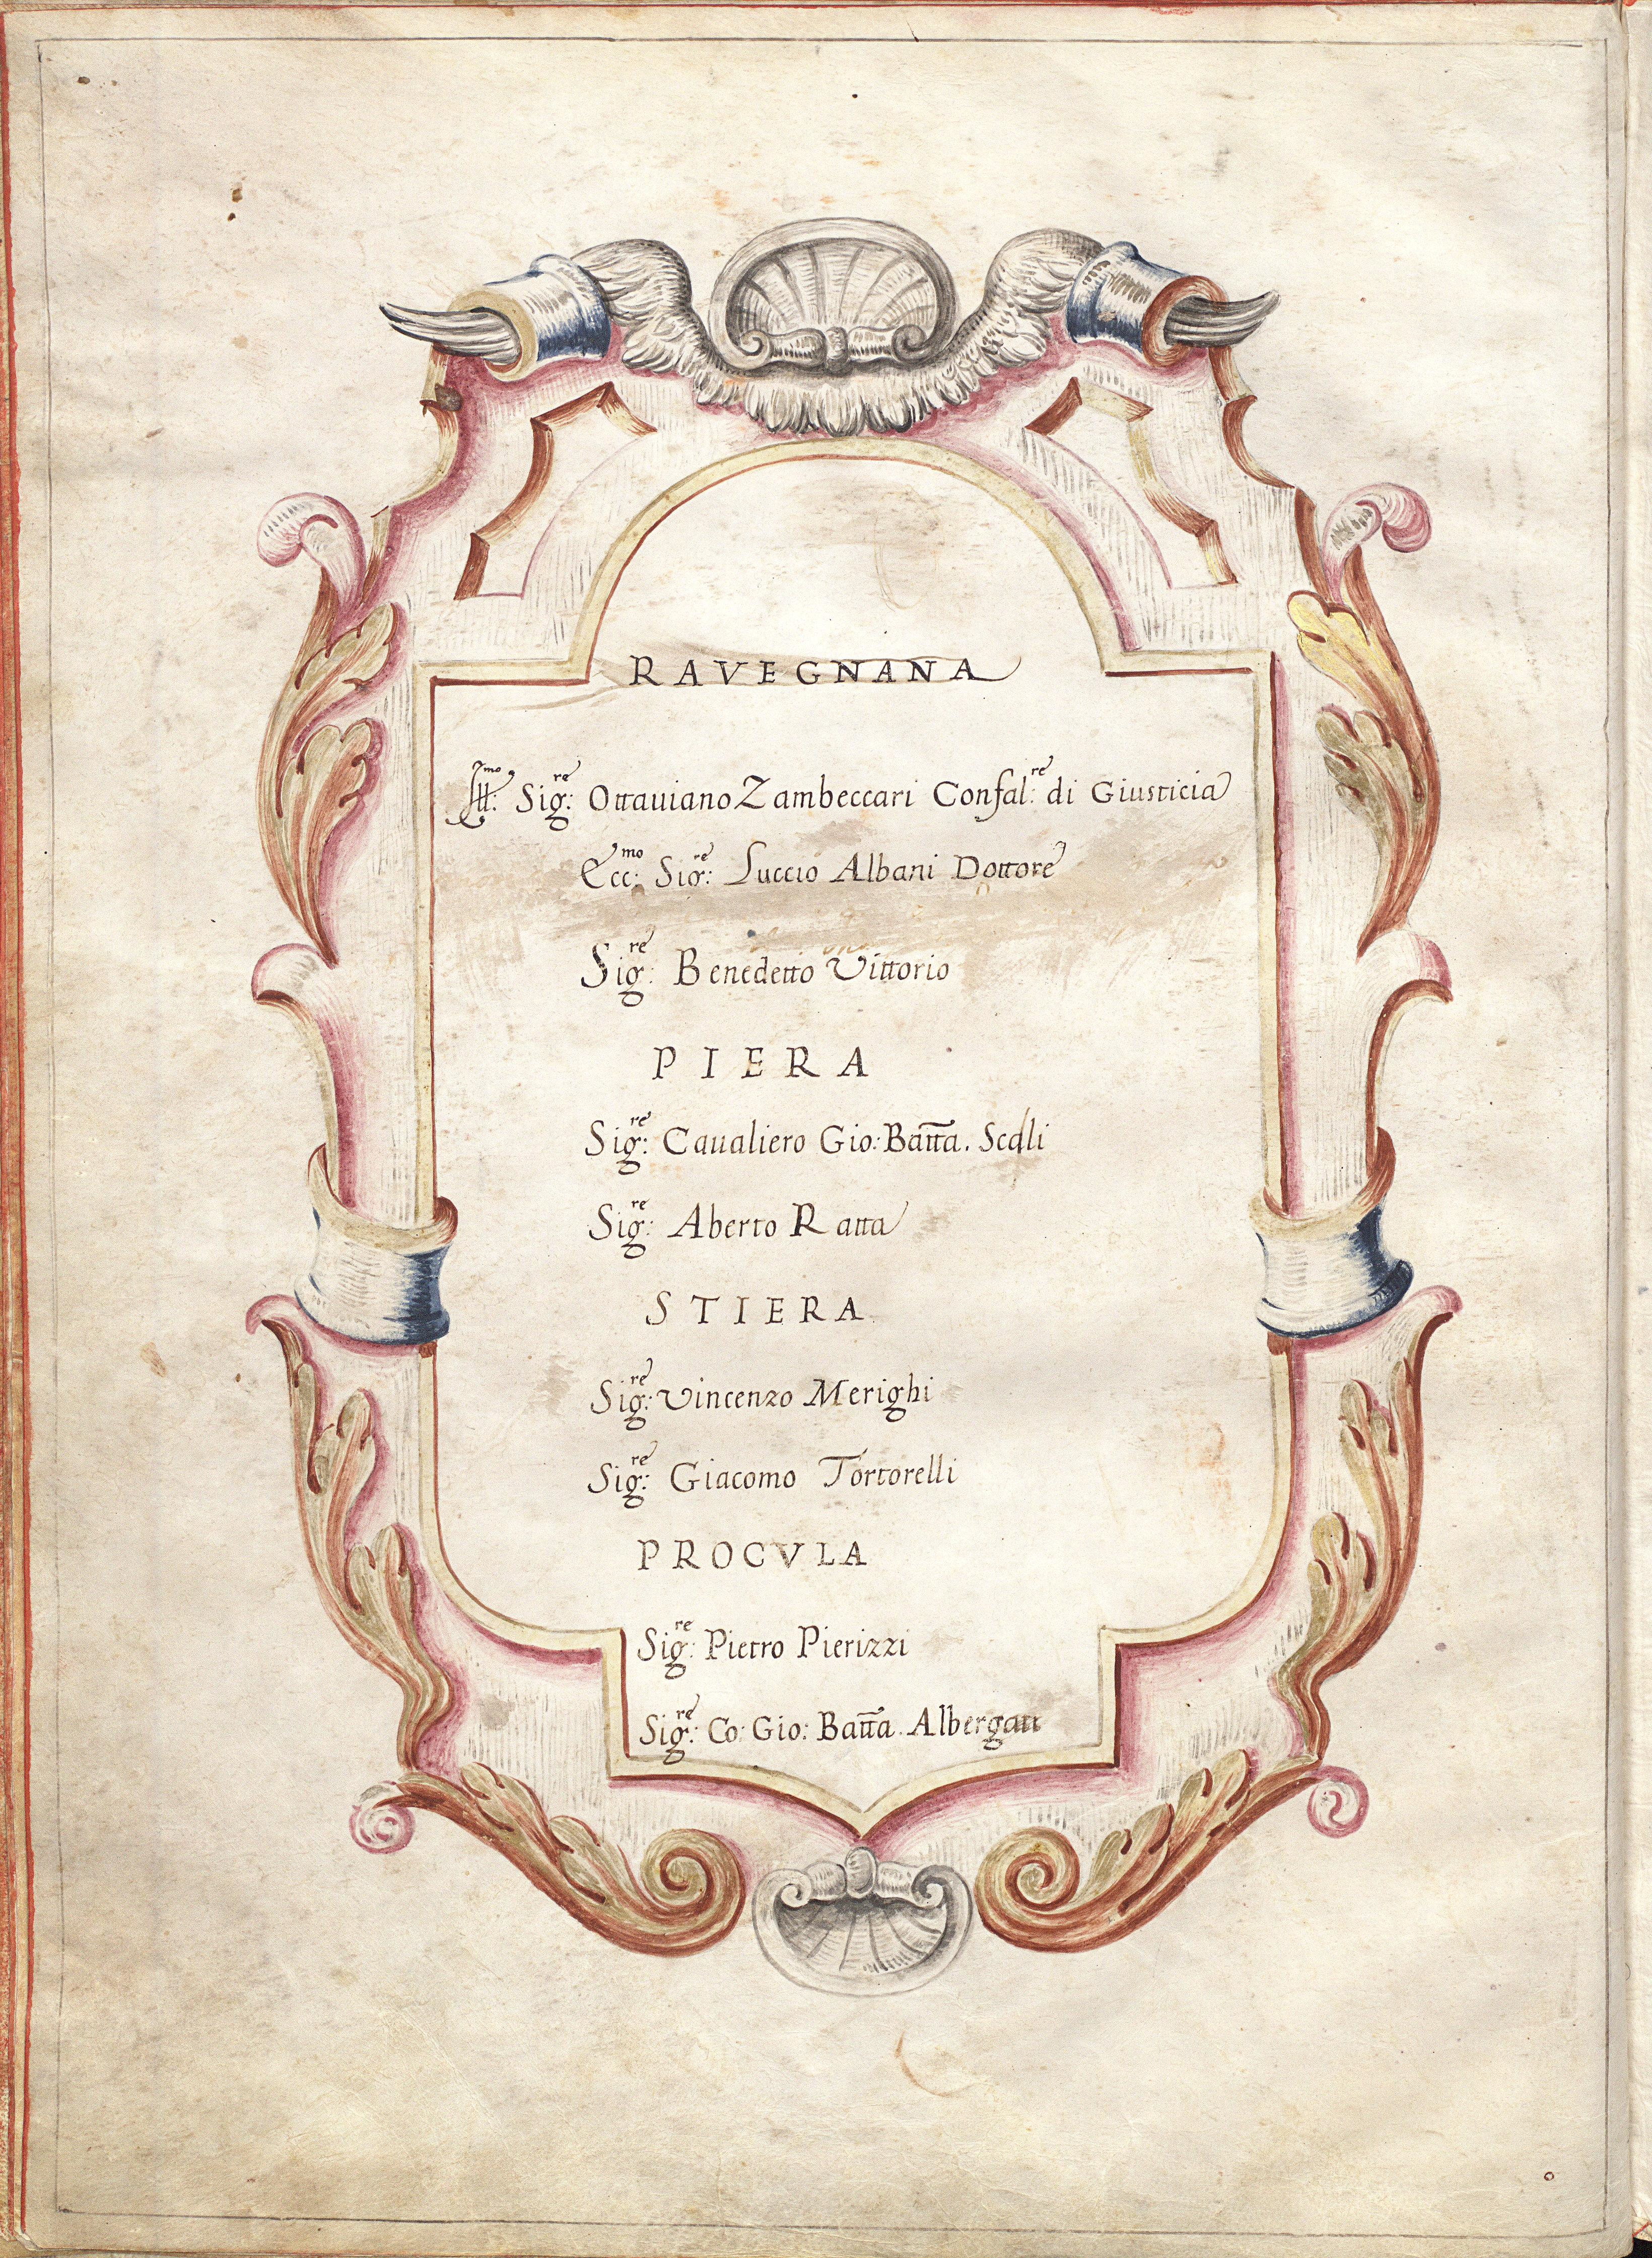 RAVEGNANA
Ill:mo Sig:re Ottauiano Zambeccari Confal:re di Giusticia
Ecc:mo Sig:re Luccio Albani Dottore
Sig:re Benedetto Vittorio
PIERA
Sig:re Caualiero Gio: Batta. Scali
Sig:re Aberto Ratta
STIERA
Sig:re Vincenzo Merighi
Sig:re Giacomo Tortorelli
PROCVLA
Sig:re Pietro Pierizzi
Sig:re Co: Gio: Batta. Albergati